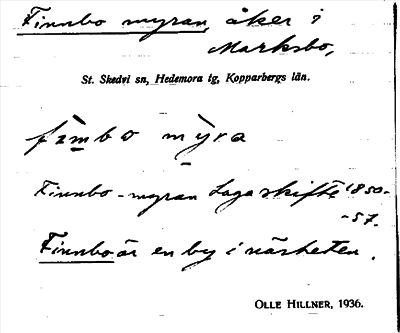 Finnbo myran, åker i
Marksbo,
St. Skedvi sn, Hedemora tg, Kopparbergs län.
fìmbo mỳra
Finnbo-myran Laga skifte 1850-
-57.
Finnbo är en by i närheten.
OLLE HILLNER, 1936.